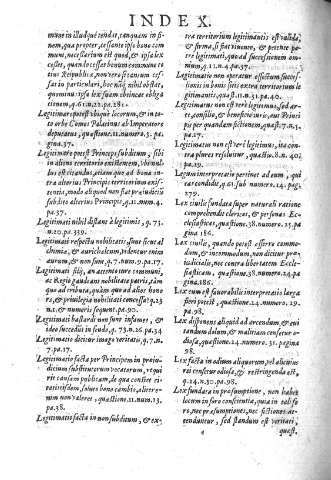 INDEX.
mune in illud quod tendit, tanquam in fi-
nem, qua propter, cessante ipso bono com-
muni, necessarium est quod, & ipsa lex
cesset, quando cessat bonum commune to-
tius Reipublicæ, non vero si tantum ces-
sat in particulari, hoc nãq; nihil obstat,
quominus ipsa lex suam obtineat obliga
tionem, q.61.nu.22.pa.281.
Legitimare potest ubique locorum, & in to-
to orbe Comes Palatinus ab Imperatore
deputatus, quæstione.11.numero.3. pa
gina.37.
Legitimare potest Princeps subditum, sibi
in alieno territorio existentem,
in alieno territorio
existenti, modo aliquod non fiat præiudiciũ
subdito alterius Principis, q.11.num.4.
pa.37.
Legitimati nihil distant à legitimis, q.73.
nu.20.pa.339.
Legitimati respectu nobilitatis sunt sicut al
chimia, & aurichalcum, pretendens esse
aurum, & non sunt, q.7.num.9.pa.17.
Legitimati filij, an
ac Regio gaudeant nobilitate patris, tam
quo ad tributa, quam quo ad alios hono
res, & privilegia nobilitati concessa? q.23
n.1.& numeris sequent.pa.90.
Legitimati bastardi non sunt infames, &
ideo succedũt in feudo, q.73.n.26.pa.34
Legitimatio dicitur imago veritatis, q.7.n.
7.pa.17.
Legitimatio facta per Principem in præiu-
dicium substitutorum vocatorum, requi
rit causam publicam, de qua constet ei
tatis
nim non valeret, quæstione.11.num.13.
pa.38.
Legitimatio facta in non subditum, & ex-
tra territorium legitimantis est valida,
& firma, si fiat vivente, & petente pa-
tre legitimati, quo ad successionem om-
nium, q.11.n.4.pa.37.
Legitimatio non operatur effectum succes-
sionis in bonis sitis extra territorium le
gitimantis, quæst.11.n.31.pa.40.
Legitimatus non est vere legitimus, sed ar-
te, consilio, & beneficio iuris, aut Princi
pis per quandam fictionem, quæst.7.n.3.
pa.17.
Legitimatio non est vere legitima, ita con-
tra plures resolvitur, quæst.11.8.n.40.
pa.19.
Legum interpretatio pertinet ad eum, qui
eas condidit, q.61.sub numero.14.pag.
279.
Lex civilis fundata super naturali ratione
comprehendit clericos, & personas Ec-
clesiasticos, quæst.38.numero.25.pa
gina 186.
Lex civilis, quando potest afferre commo-
dum, & incommodum, non dicitur præ-
iudicialis, nec contra libertatem Eccle-
siasticam, quæst.38.numero.24.pa
gina.186.
Lex cum est favorabilis interpretatio larga
fieri potest, quæstione.24.numero.29.
pa.98.
Lex disponens aliquid ad arcendum, & evi
tandum dolum, & malitiam censetur o-
diosa, quæstione.24.numero.31.pagina
98.
Lex facta in odium aliquorum, vel alicuius
rei censetur odiosa, & restringenda est,
q.24.n.30.pa.98.
Lex fundata in præsumptione, non habet
locum in foro conscientiæ, quia in tali fo
ro, nec præsumptiones, nec fictiones at-
tenduntur, sed standum est veritati,
quæst.